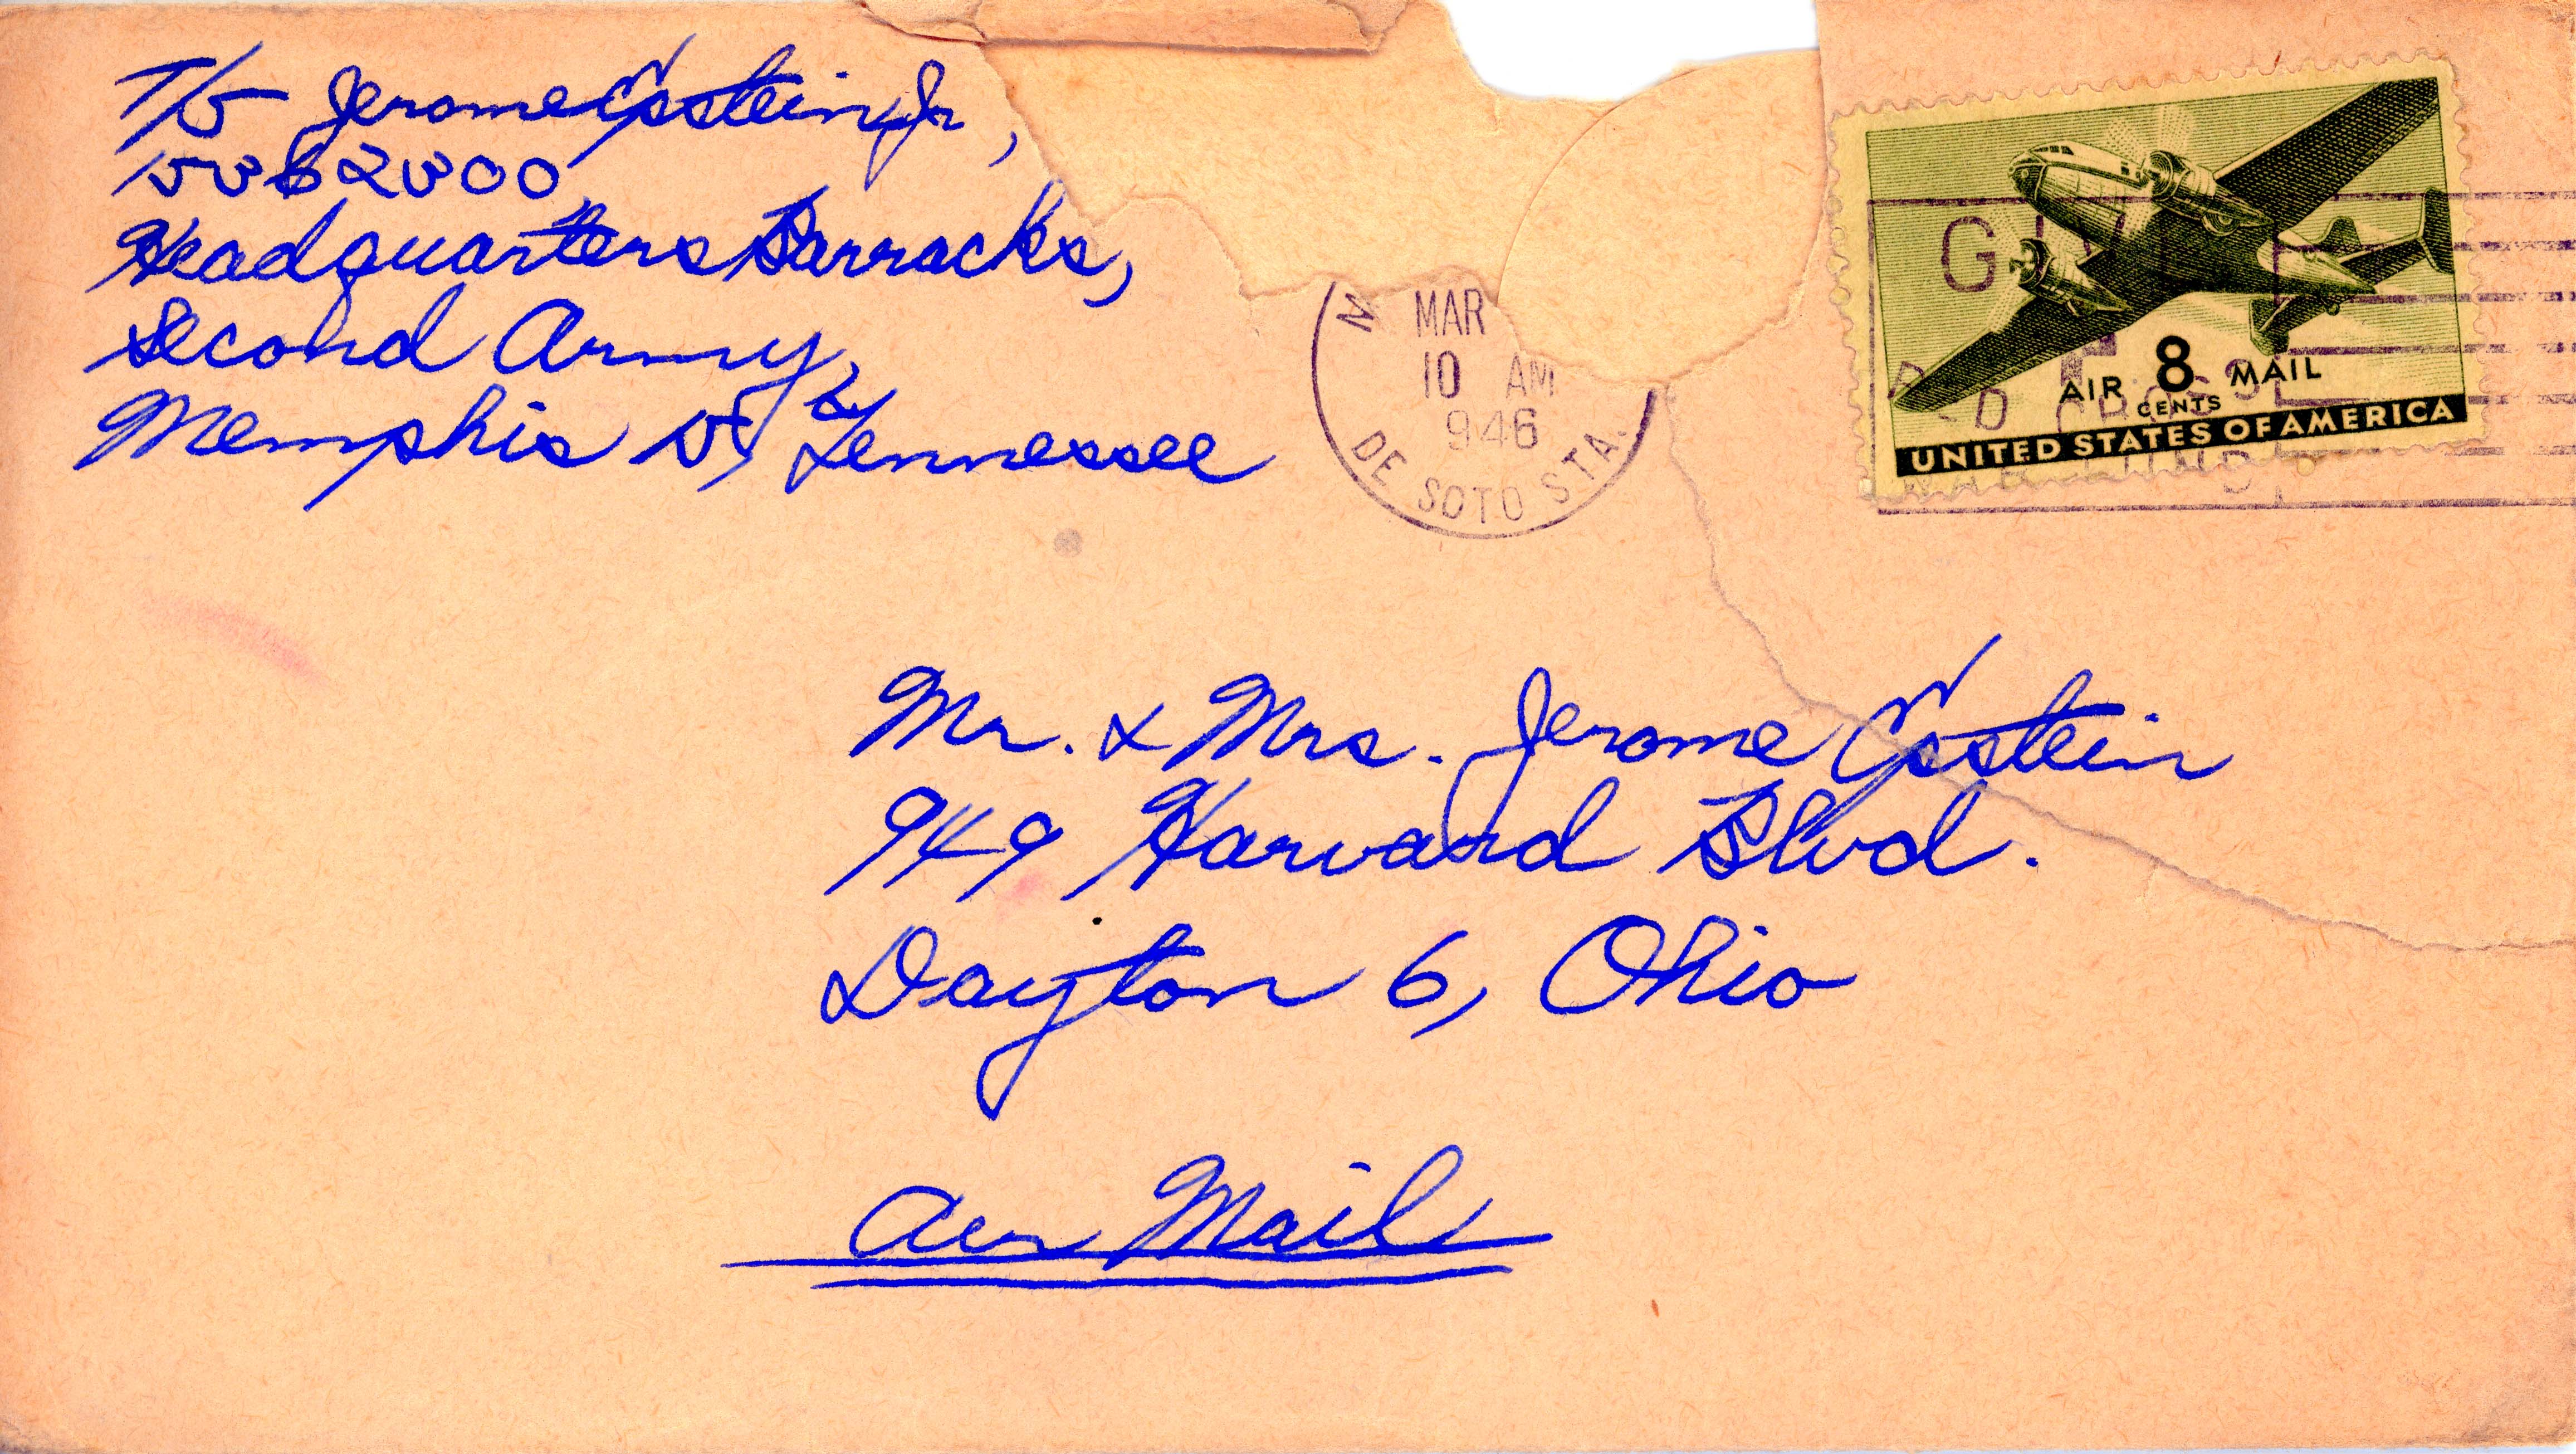 T/5 Jerome Epstein Jr,
Headquarters Barracks,
Second Army,
Memphis 15, Tennessee
M
MAR
10 AM
946
DE SOTO STA.
GIVE
RED CROSS
AIR 8 MAIL
CENTS
UNITED STATES OF AMERICA
Mr. & Mrs. Jerome Epstein
949 Harvard Blvd.
Dayton 6, Ohio
Air Mail